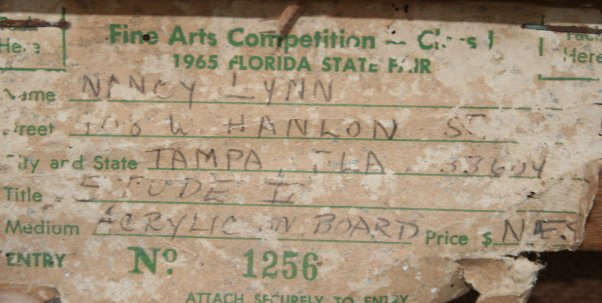 Fine Arts Competition — Class I
Here
Here
1965 FLORIDA STATE FAIR
Name NANCY LYNN
Street HANLON ST
City and State TAMPA, FLA. 33604
Title ETUDE II
Medium ACRYLIC ON BOARD Price $ NFS
ENTRY No 1256
ATTACH SECURELY TO ENTRY